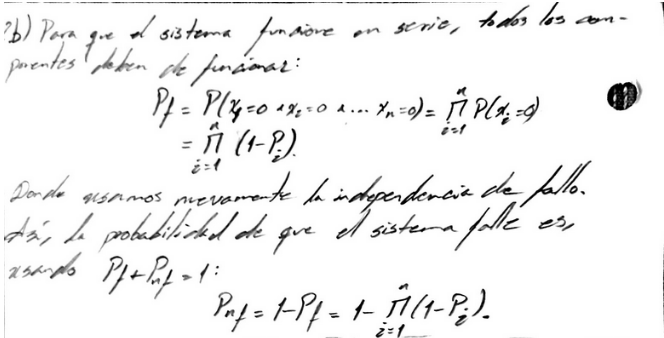 2b) Para que el sistema funcione en serie, todos los com-
ponentes deben de funcionar:
P_f = P(x_1=0 ∧ x_2=0 ∧ ... x_n=0) = ∏_{i=1}^{n} P(x_i=0)
= ∏_{i=1}^{n} (1-P_i).
Donde usamos nuevamente la independencia de fallo.
Así, la probabilidad de que el sistema falle es,
usando P_f + P_nf = 1:
P_nf = 1-P_f = 1- ∏_{i=1}^{n} (1-P_i).